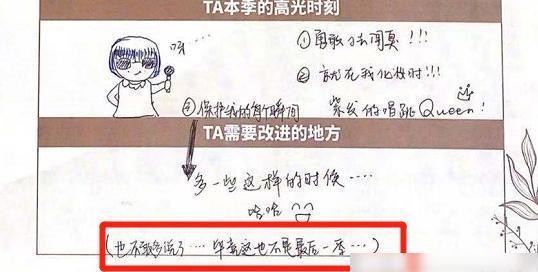 TA本季的高光时刻
哼…
①勇敢去闯真!!!
②就在我化妆时!!!
紫发的唱跳Queen!
③保护我的每个瞬间
TA需要改进的地方
多一些这样的时候····
哈哈
(也不敢多说了···· 毕竟这也不是最后一季···)